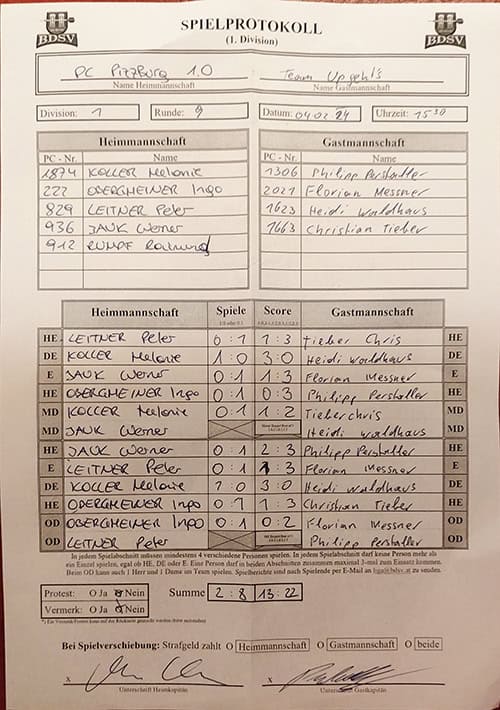 BDSV SPIELPROTOKOLL BDSV
(1. Division)
PC PizzBurg 1.0 Team Upgehl's
Name Heimmannschaft Name Gastmannschaft
Division: 1 Runde: 9 Datum: 04.02.24 Uhrzeit: 15 30
Heimmannschaft Gastmannschaft
PC - Nr. Name PC - Nr. Name
1874 KOLLER Melanie 1306 Philipp Pershaller
222 OBERGMEINER Ingo 2021 Florian Messner
829 LEITNER Peter 1623 Heidi Waldhaus
936 JAUK Werner 1663 Christian Tieber
912 RUMPF Raimund
Heimmannschaft Spiele Score Gastmannschaft
HE LEITNER Peter 0 : 1 1 : 3 Tieber Chris HE
DE KOLLER Melanie 1 : 0 3 : 0 Heidi Waldhaus DE
E JAUK Werner 0 : 1 1 : 3 Florian Messner E
HE OBERGMEINER Ingo 0 : 1 0 : 3 Philipp Pershaller HE
MD KOLLER Melanie 0 : 1 1 : 2 Tieber chris MD
MD JAUK Werner Heidi Waldhaus MD
HE JAUK Werner 0 : 1 2 : 3 Philipp Pershaller HE
E LEITNER Peter 0 : 1 1 : 3 Florian Messner E
DE KOLLER Melanie 1 : 0 3 : 0 Heidi Waldhaus DE
HE OBERGMEINER Ingo 0 : 1 1 : 3 Christian Tieber HE
OD OBERGMEINER Ingo 0 : 1 0 : 2 Florian Messner OD
OD LEITNER Peter Philipp Pershaller OD
In jedem Spielabschnitt müssen mindestens 4 verschiedene Personen spielen. In jedem Spielabschnitt darf keine Person mehr als
ein Einzel spielen, egal ob HE, DE oder E. Eine Person darf in beiden Abschnitten zusammen maximal 3-mal zum Einsatz kommen.
Beim OD kann auch 1 Herr und 1 Dame im Team spielen. Spielberichte sind nach Spielende per E-Mail an liga@bdsv.at zu senden.
Protest: O Ja Nein Summe 2 : 8 13 : 22
Vermerk: O Ja Nein
Bei Spielverschiebung: Strafgeld zahlt O Heimmannschaft O Gastmannschaft O beide
x x
Unterschrift Heimkapitän Unterschrift Gastkapitän